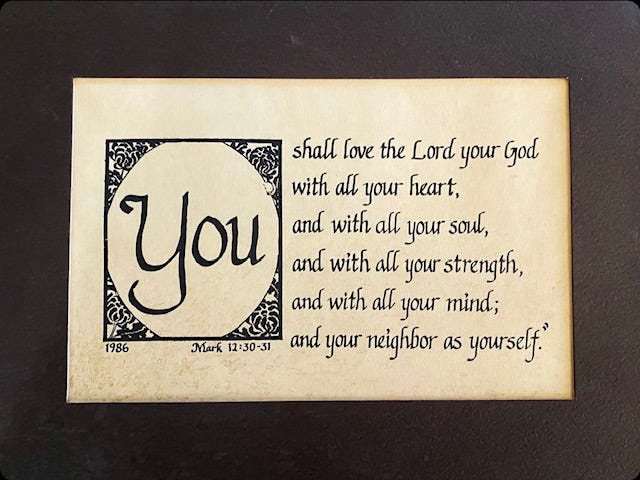 You
shall love the Lord your God
with all your heart,
and with all your soul,
and with all your strength,
and with all your mind;
and your neighbor as yourself."
1986 Mark 12:30-31